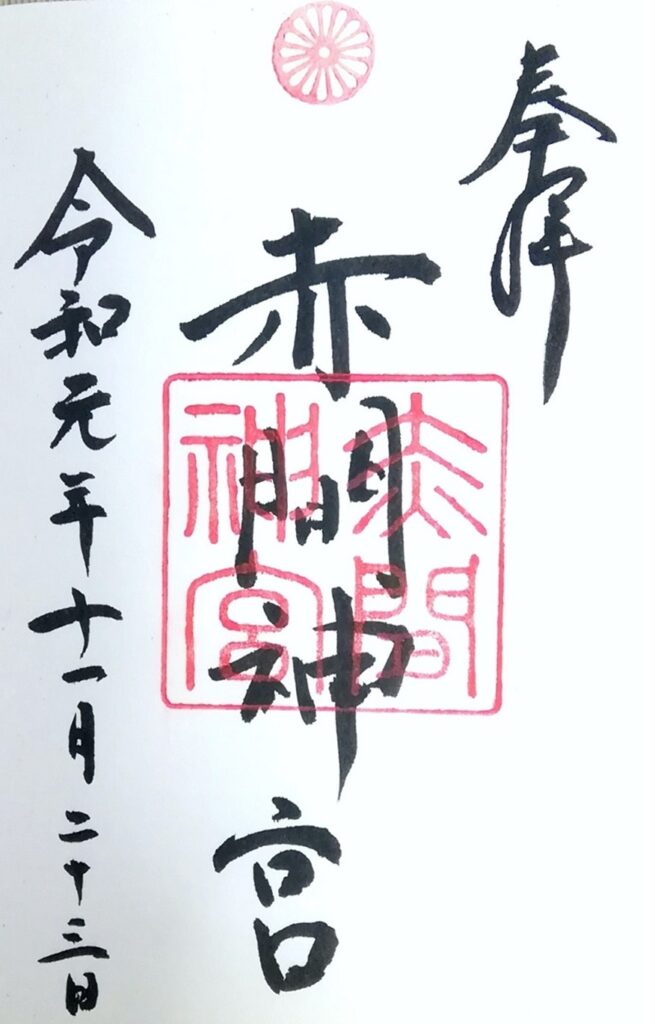 奉拝
赤間神宮
赤間神宮
令和元年十一月二十三日